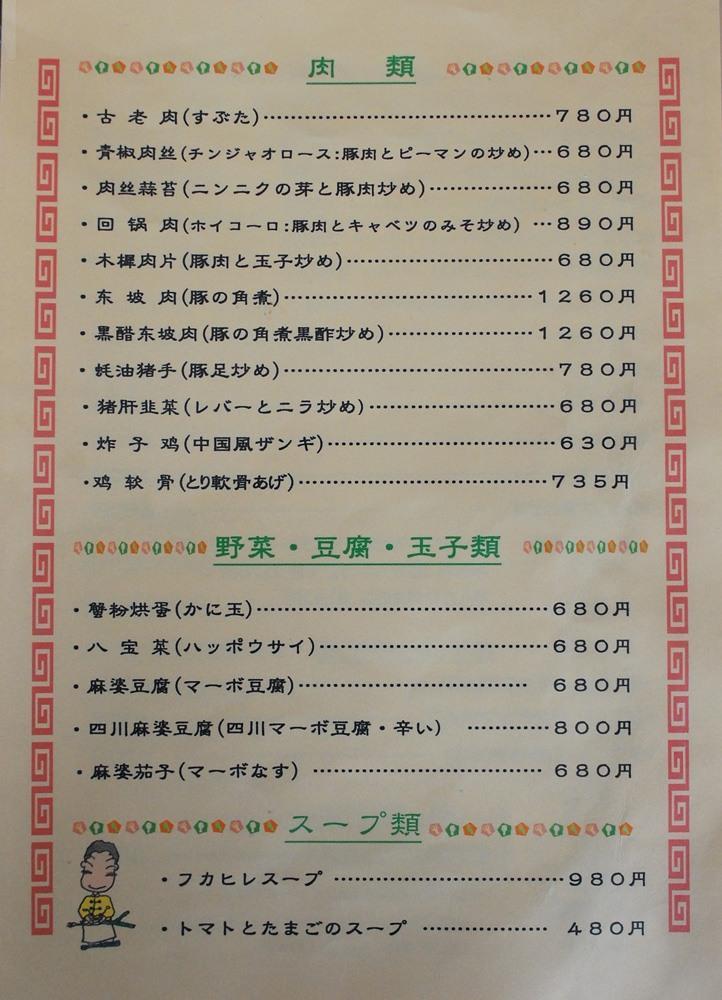 肉 類
・古老肉(すぶた)………………………………780円
・青椒肉丝(チンジャオロース:豚肉とピーマンの炒め)…680円
・肉丝蒜苔(ニンニクの芽と豚肉炒め)……………680円
・回锅肉(ホイコーロ:豚肉とキャベツのみそ炒め) …890円
・木樨肉片(豚肉と玉子炒め)………………………680円
・东坡肉(豚の角煮)…………………………1260円
・黒醋东坡肉(豚の角煮黒酢炒め)………………1260円
・蚝油猪手(豚足炒め)……………………………780円
・猪肝韭菜(レバーとニラ炒め)……………………680円
・炸子鸡(中国風ザンギ)…………………………630円
・鸡软骨(とり軟骨あげ)……………………………735円
野菜・豆腐・玉子類
・蟹粉烘蛋(かに玉)………………………………680円
・八宝菜(ハッポウサイ)…………………………680円
・麻婆豆腐(マーボ豆腐)………………………… 680円
・四川麻婆豆腐(四川マーボ豆腐・辛い) …………800円
・麻婆茄子(マーボなす) ………………………… 680円
スープ類
・フカヒレスープ …………………………980円
・トマトとたまごのスープ ……………… 480円